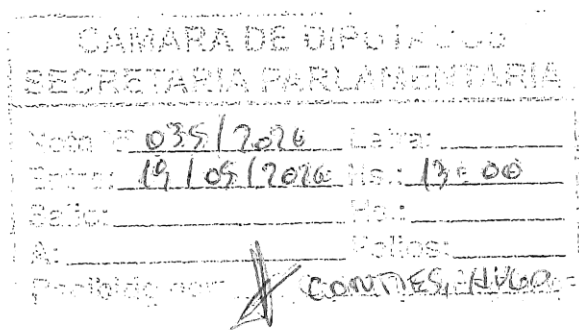 CAMARA DE DIPUTADOS
SECRETARIA PARLAMENTARIA
Nota N° 035/2026 Letra:
Entro: 19/05/2026 Hs.: 13:00
Salio: Hs.:
A: Folios:
Recibido por: HUGO